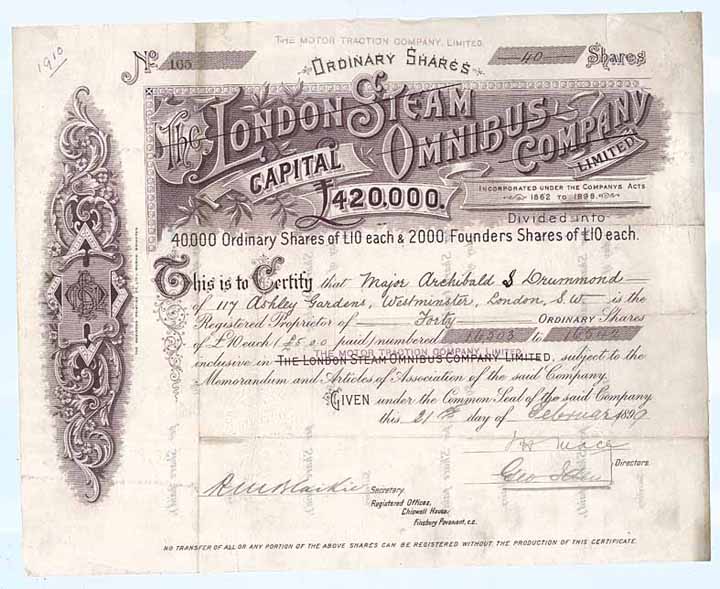 1910
THE MOTOR TRACTION COMPANY, LIMITED.
No. 165 ORDINARY SHARES 40 Shares
The LONDON STEAM
OMNIBUS COMPANY
LIMITED.
CAPITAL
£420.000.
INCORPORATED UNDER THE COMPANYS ACTS
1862 TO 1898.
Divided into
40.000 Ordinary Shares of £10 each & 2000 Founders Shares of £10 each.
This is to Certify that Major Archibald S Drummond
of 117 Ashley Gardens, Westminster, London, S.W. is the
Registered Proprietor of Forty ORDINARY Shares
of £10 each (£5.0.0 paid) numbered 16503 to
THE MOTOR TRACTION COMPANY, LIMITED
inclusive in THE LONDON STEAM OMNIBUS COMPANY LIMITED, subject to the
Memorandum and Articles of Association of the said Company.
GIVEN under the Common Seal of the said Company
this 21st day of February 1899
Directors.
Secretary.
Registered Offices,
Chiswell House,
Finsbury Pavement, E.C.
NO TRANSFER OF ALL OR ANY PORTION OF THE ABOVE SHARES CAN BE REGISTERED WITHOUT THE PRODUCTION OF THIS CERTIFICATE.